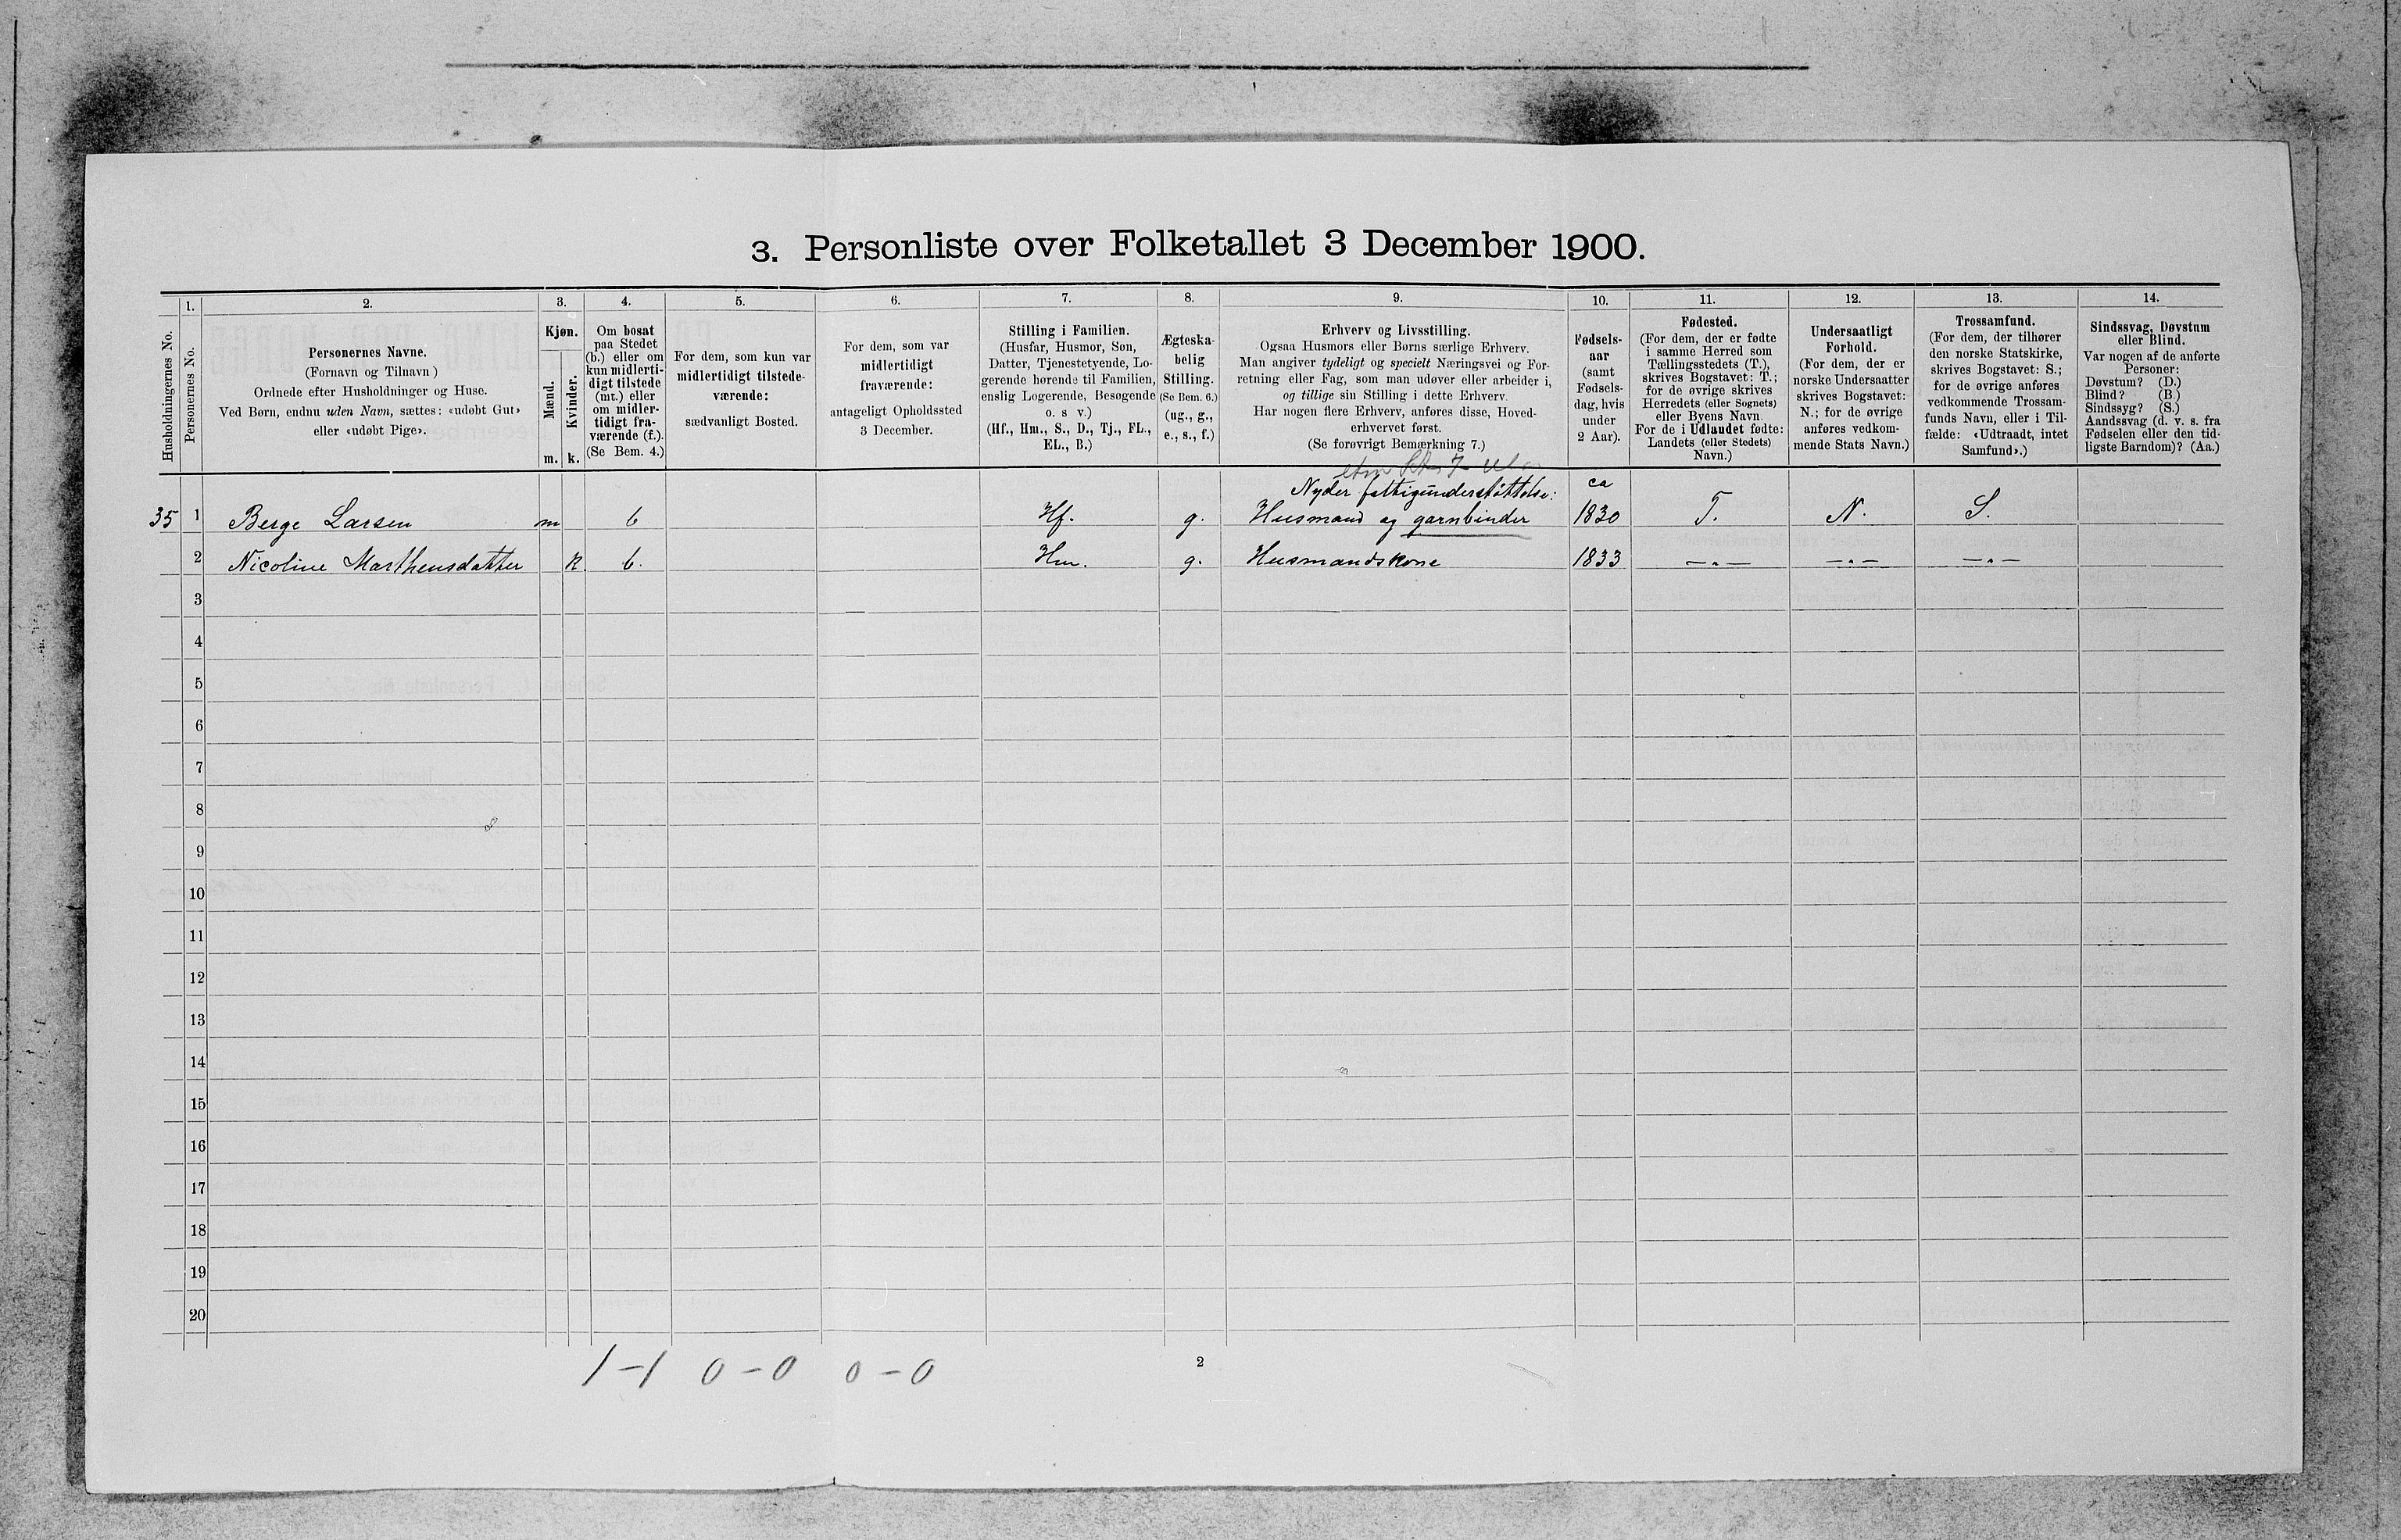 3. Personliste over Folketallet 3 December 1900.
1.
2.
3.
4.
5.
6.
7.
8.
9.
10.
11.
12.
13.
14.
Husholdningernes No.
Personernes No.
Personernes Navne.
(Fornavn og Tilnavn)
Ordnede efter Husholdninger og Huse.
Ved Børn, endnu uden Navn, sættes: «udøbt Gut»
eller «udøbt Pige».
Kjøn.
Mænd.
Kvinder.
m.
k.
Om bosat
paa Stedet
(b.) eller om
kun midlerti-
digt tilstede
(mt.) eller
om midler-
tidigt fra-
værende (f.).
(Se Bem. 4.)
For dem, som kun var
midlertidigt tilstede-
værende:
sædvanligt Bosted.
For dem, som var
midlertidigt
fraværende:
antageligt Opholdssted
3 December.
Stilling i Familien.
(Husfar, Husmor, Søn,
Datter, Tjenestetyende, Lo-
gerende hørende til Familien,
enslig Logerende, Besøgende
o. s v.)
(Hf., Hm., S., D., Tj., FL.,
EL., B.)
Ægteska-
belig
Stilling.
(Se Bem. 6.)
(ug., g.,
e., s., f.)
Erhverv og Livsstilling.
Ogsaa Husmors eller Børns særlige Erhverv.
Man angiver tydeligt og specielt Næringsvei og For-
retning eller Fag, som man udøver eller arbeider i,
og tillige sin Stilling i dette Erhverv.
Har nogen flere Erhverv, anføres disse, Hoved-
erhvervet først.
(Se forøvrigt Bemærkning 7.)
Fødsels-
aar
(samt
Fødsels-
dag, hvis
under
2 Aar).
Fødested.
(For dem, der er fødte
i samme Herred som
Tællingsstedets (T.),
skrives Bogstavet: T.;
for de øvrige skrives
Herredets (eller Sognets)
eller Byens Navn.
For de i Udlandet fødte:
Landets (eller Stedets)
Navn.)
Undersaatligt
Forhold.
(For dem, der er
norske Undersaatter
skrives Bogstavet:
N.; for de øvrige
anføres vedkom-
mende Stats Navn.)
Trossamfund.
(For dem, der tilhører
den norske Statskirke,
skrives Bogstavet: S.;
for de øvrige anføres
vedkommende Trossam-
funds Navn, eller i Til-
fælde: «Udtraadt, intet
Samfund».)
Sindssvag, Døvstum
eller Blind.
Var nogen af de anførte
Personer:
Døvstum? (D.)
Blind? (B.)
Sindssyg? (S.)
Aandssvag (d. v. s. fra
Fødselen eller den tid-
ligste Barndom)? (Aa.)
Nyder fattigunderstøttelse: ca
35 1 Berge Larsen m b Hf. g. Husmand og garnbinder 1830 T. N. S.
2 Nicoline Marthensdatter k b. Hm. g. Husmandskone 1833 —„— —„— —„—
3
4
5
6
7
8
9
10
11
12
13
14
15
16
17
18
19
20
1–1 0–0 0–0
2